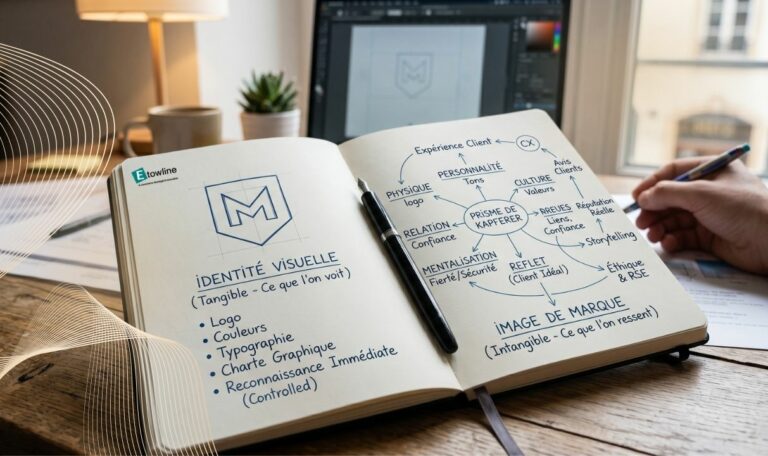 Etowline
iDENTiTÉ ViSUELLE
(Tangible - Ce que l'on voit)
• Logo
• Couleurs
• Typographie
• Charte Graphique
• Reconnaissance Immédiate
(Controlled)
Expérience Client
CX
PERSONNALITÉ
Tons
CULTURE
Valeurs
Avis
Clients
PHYSIQUE
logo
PRISME DE
KAPFERER
BREUES
Liens,
Confiance
Réputation
Réelle
RELATION
Confiance
Storytelling
MENTALISATION
Fierté/Sécurité
REFLET
(Client Idéal)
Éthique
& RSE
iMAGE DE MARQUE
(Intangible - Ce que l'on ressent)